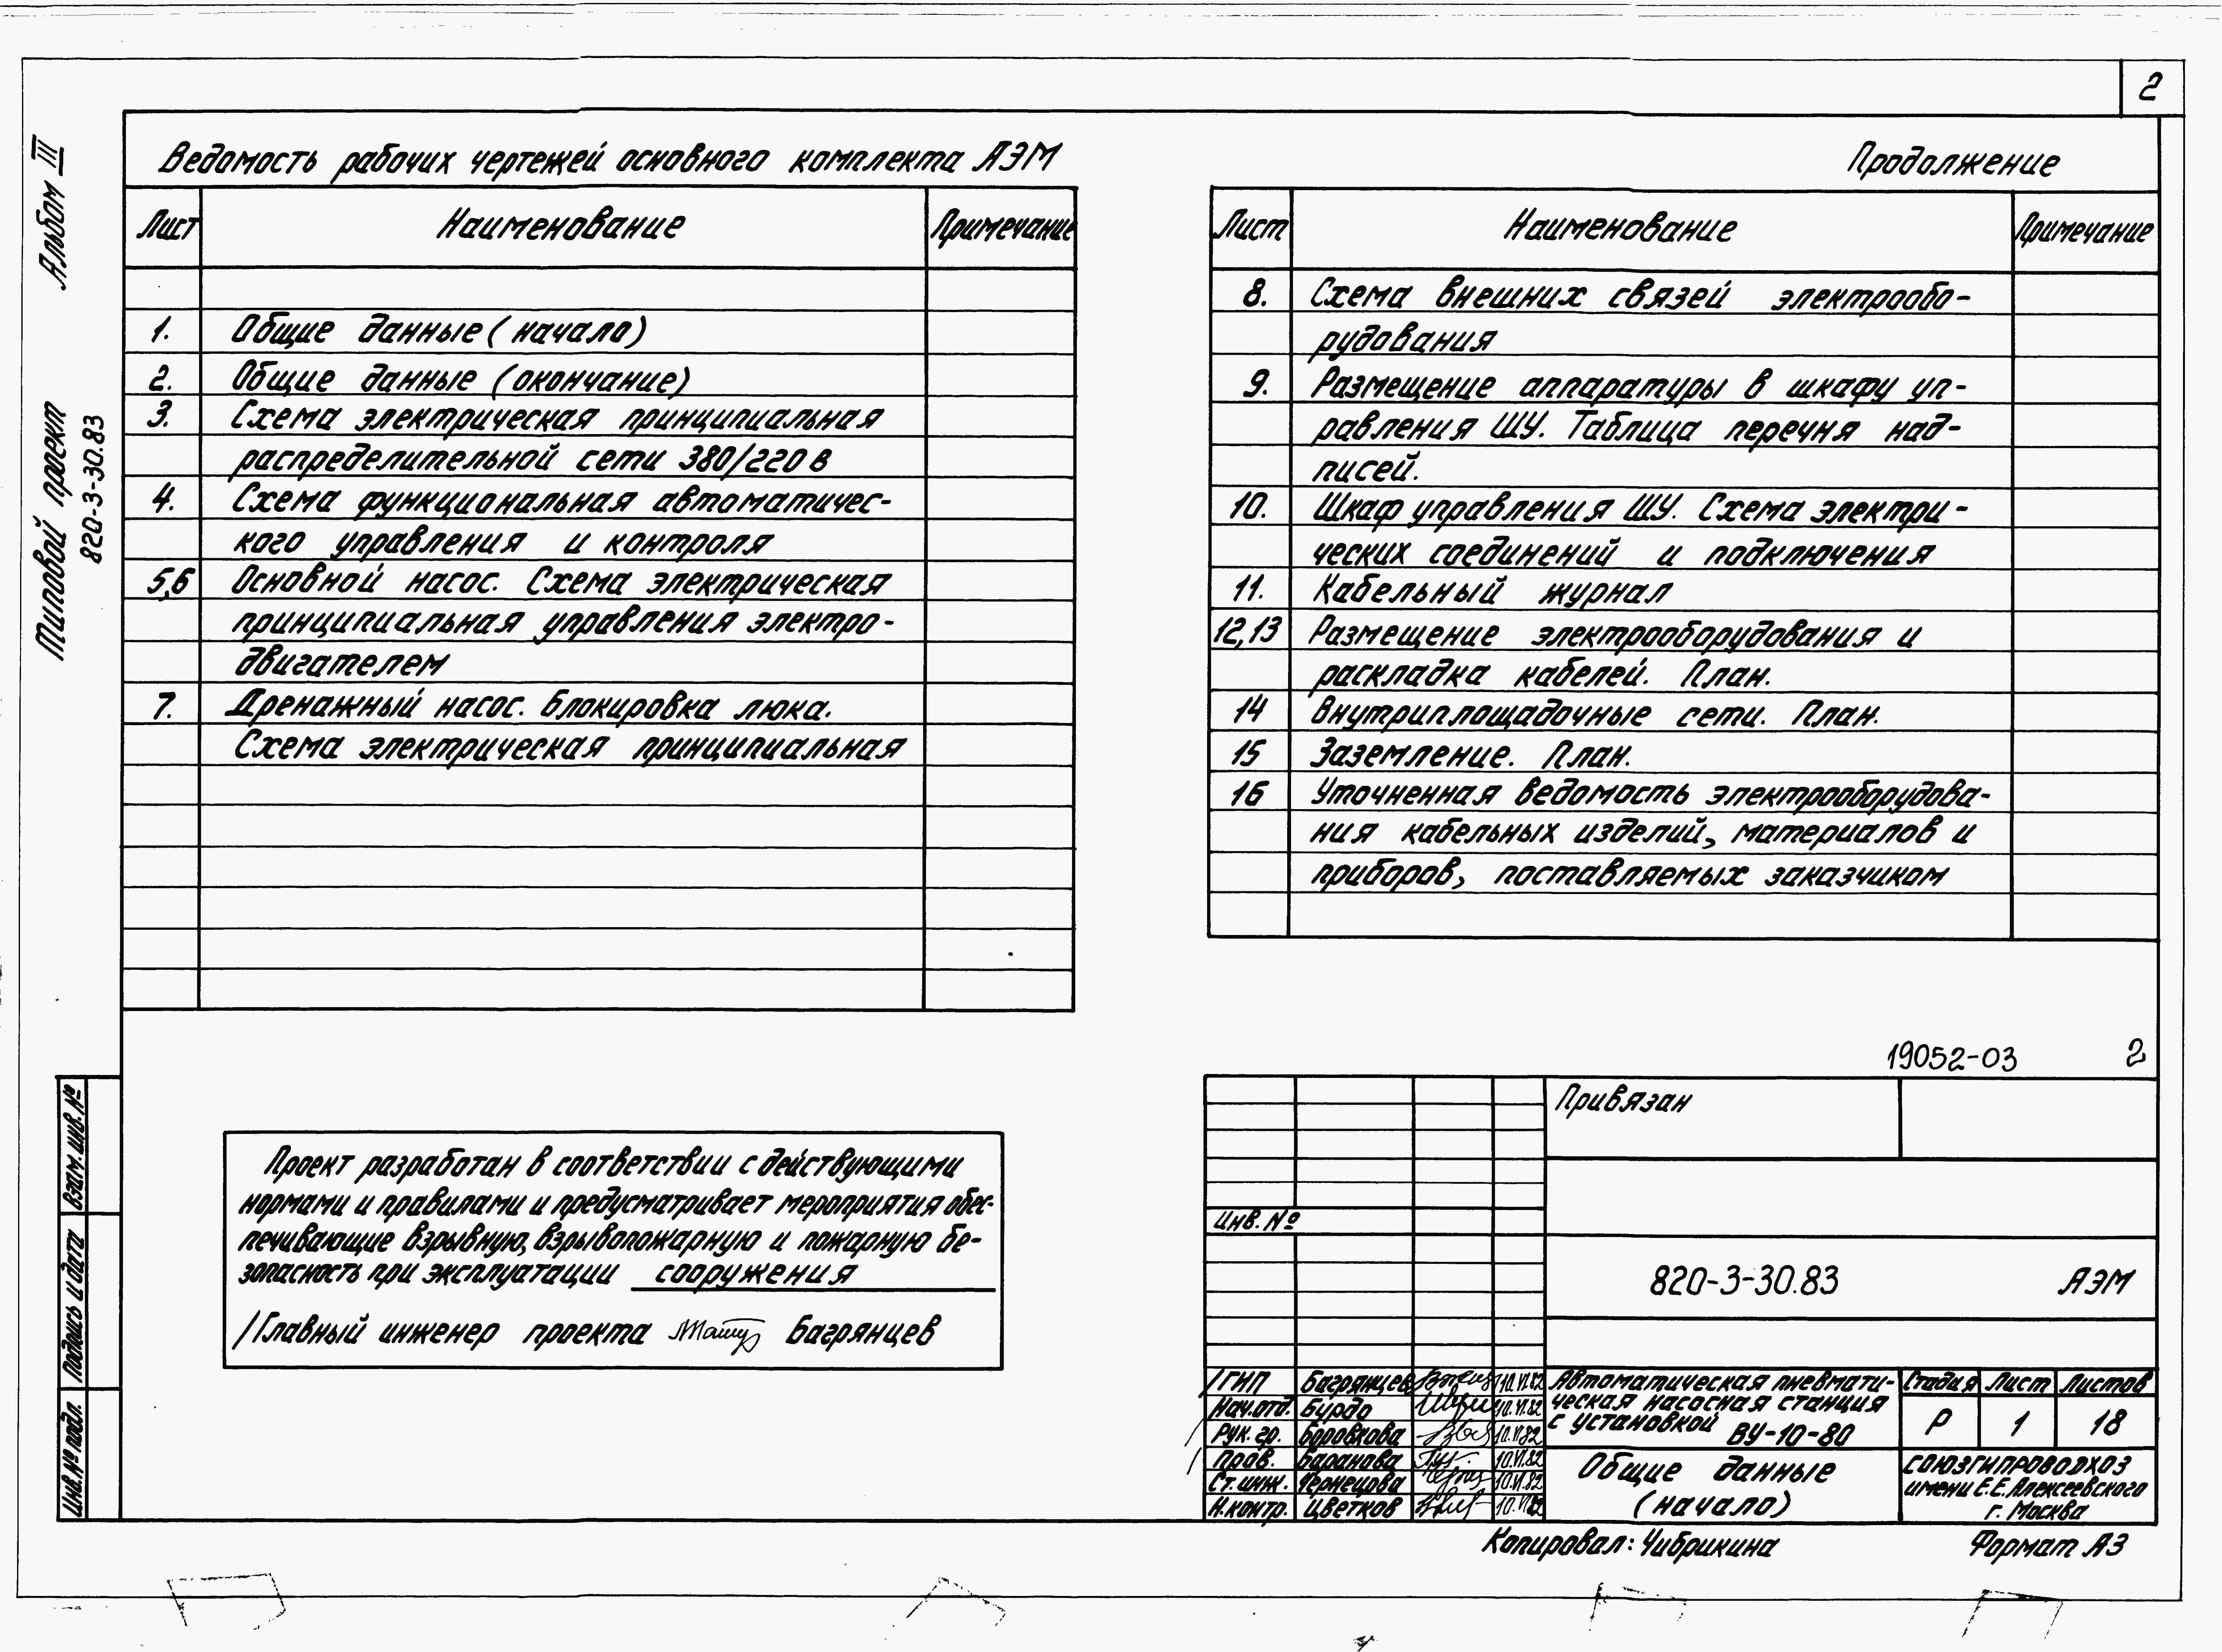 2
Альбом III
Типовой проект
820-3-30.83
Ведомость рабочих чертежей основного комплекта АЭМ
Лист Наименование Примечание
1. Общие данные (начало)
2. Общие данные (окончание)
3. Схема электрическая принципиальная
распределительной сети 380/220 в
4. Схема функциональная автоматичес-
кого управления и контроля
5,6 Основной насос. Схема электрическая
принципиальная управления электро-
двигателем
7. Дренажный насос. Блокировка люка.
Схема электрическая принципиальная
Продолжение
Лист Наименование Примечание
8. Схема внешних связей электрообо-
рудования
9. Размещение аппаратуры в шкафу уп-
равления ШУ. Таблица перечня над-
писей.
10. Шкаф управления ШУ. Схема электри-
ческих соединений и подключения
11. Кабельный журнал
12,13 Размещение электрооборудования и
раскладка кабелей. План.
14 Внутриплощадочные сети. План.
15 Заземление. План.
16 Уточненная ведомость электрооборудова-
ния кабельных изделий, материалов и
приборов, поставляемых заказчиком
19052-03 2
Проект разработан в соответствии с действующими
нормами и правилами и предусматривает мероприятия обес-
печивающие взрывную, взрывопожарную и пожарную бе-
зопасность при эксплуатации сооружения
/Главный инженер проекта Багрянцев
Взам. инв. №
Подпись и дата
Инв. № подл.
Привязан
Инв. №
820-3-30.83 АЭМ
ГИП Багрянцев 10.VI.82
Нач.отд. Бурдо 10.VI.82
Рук. гр. Боровкова 10.VI.82
Пров. Баранова 10.VI.82
Ст. инж. Чернецова 10.VI.82
Н.контр. Цветков 10.VI.82
Автоматическая пневмати-
ческая насосная станция
с установкой ВУ-10-80
Стадия Лист Листов
Р 1 18
Общие данные
(начало)
СОЮЗГИПРОВОДХОЗ
имени Е.Е. Алексеевского
г. Москва
Копировал: Чибрикина Формат А3